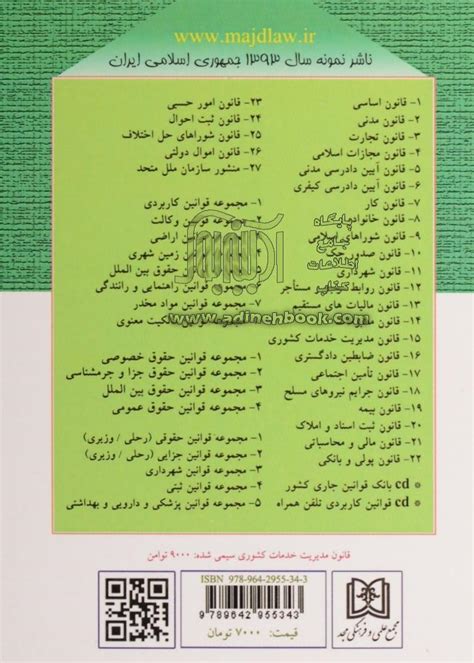 www.majdlaw.ir
ناشر نمونه سال ۱۳۹۳ جمهوری اسلامی ایران
۱- قانون اساسی
۲- قانون مدنی
۳- قانون تجارت
۴- قانون مجازات اسلامی
۵- قانون آیین دادرسی مدنی
۶- قانون آیین دادرسی کیفری
۷- قانون کار
۸- قانون خانواده
۹- قانون شوراهای اسلامی
۱۰- قانون صدور چک
۱۱- قانون شهرداری
۱۲- قانون روابط مستأجر
۱۳- قانون مالیات های مستقیم
۱۴- قانون
۱۵- قانون مدیریت خدمات کشوری
۱۶- قانون ضابطین دادگستری
۱۷- قانون تأمین اجتماعی
۱۸- قانون جرایم نیروهای مسلح
۱۹- قانون بیمه
۲۰- قانون ثبت اسناد و املاک
۲۱- قانون مالی و محاسباتی
۲۲- قانون پولی و بانکی
* cd بانک قوانین جاری کشور
* cd قوانین کاربردی تلفن همراه
۲۳- قانون امور حسبی
۲۴- قانون ثبت احوال
۲۵- قانون شوراهای حل اختلاف
۲۶- قانون اموال دولتی
۲۷- منشور سازمان ملل متحد
۱- مجموعه قوانین کاربردی
۲- قوانین وکالت
اراضی
زمین شهری
حقوق بین الملل
قوانین راهنمایی و رانندگی
۷- مجموعه قوانین مواد مخدر
مالکیت معنوی
۱- مجموعه قوانین حقوق خصوصی
۲- مجموعه قوانین حقوق جزا و جرمشناسی
۳- مجموعه قوانین حقوق بین الملل
۴- مجموعه قوانین حقوق عمومی
۱- مجموعه قوانین حقوقی (رحلی / وزیری)
۲- مجموعه قوانین جزایی (رحلی / وزیری)
۳- مجموعه قوانین شهرداری
۴- مجموعه قوانین ثبتی
۵- مجموعه قوانین پزشکی و دارویی و بهداشتی
پایگاه
جامع
اطلاعات
کتاب
www.adinehbook.com
قانون مدیریت خدمات کشوری سیمی شده: ۹۰۰۰ تومان
ISBN 978-964-2955-34-3
9789642955343
قیمت: ۷۰۰۰ تومان
مجمع علمی و فرهنگی مجد